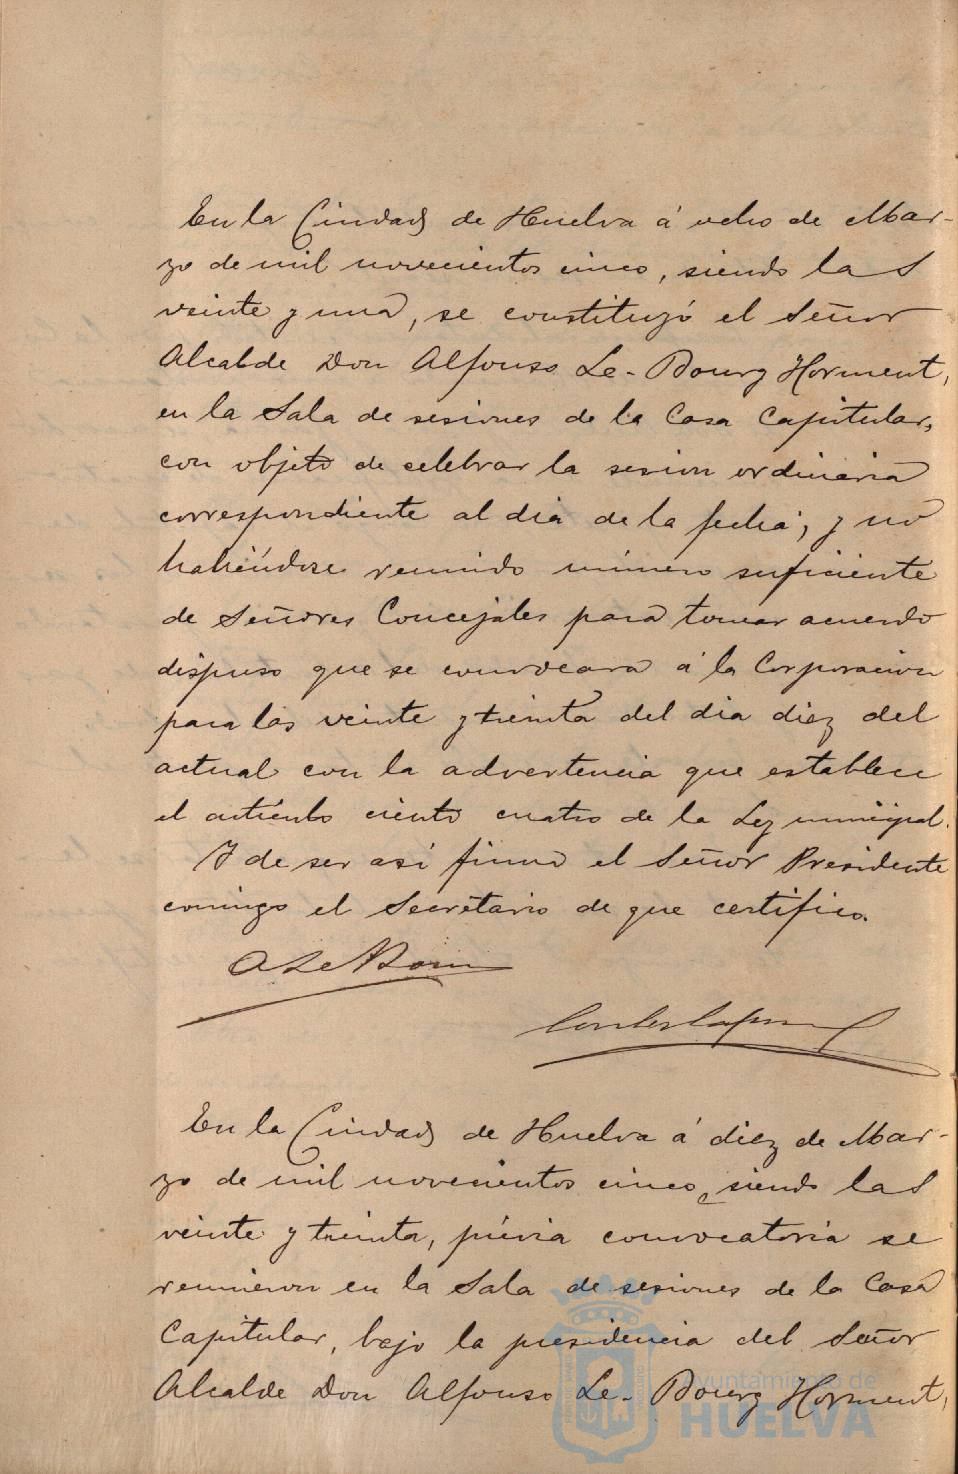 En la Ciudad de Huelva á ocho de Mar-
zo de mil novecientos cinco, siendo las
veinte y una, se constituyó el Señor
Alcalde Don Alfonso Le-Bourg Horment,
en la Sala de sesiones de la Casa Capitular,
con objeto de celebrar la sesion ordinaria
correspondiente al dia de la fecha; y no
habiéndose reunido número suficiente
de Señores Concejales para tomar acuerdo
dispuso que se convocara á la Corporacion
para las veinte y treinta del dia diez del
actual con la advertencia que establece
el artículo ciento cuatro de la Ley municipal.
Y de ser así firma el Señor Presidente
comigo el Secretario de que certifico.
A Le Bour
En la Ciudad de Huelva á diez de Mar-
zo de mil novecientos cinco, siendo las
veinte y treinta, prévia convocatoria se
reunieron en la Sala de sesiones de la Casa
Capitular, bajo la presidencia del Señor
Alcalde Don Alfonso Le-Bourg Horment,
Ayuntamiento de
HUELVA